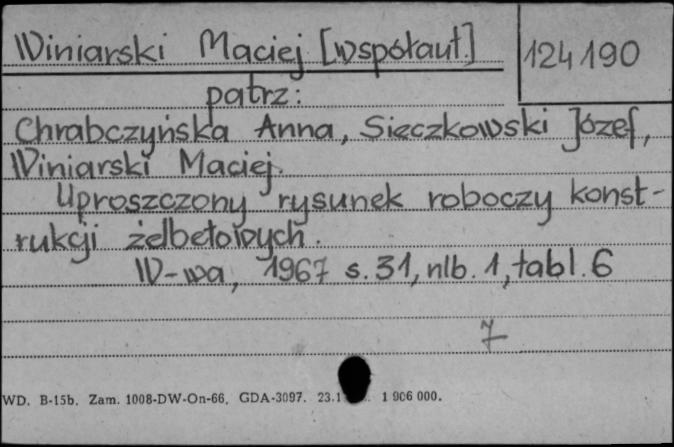 Winiarski Maciej [współaut.]
124190
patrz:
Chrabczyńska Anna, Sieczkowski Józef,
Winiarski Maciej.
Uproszczony rysunek roboczy konst-
rukcji żelbetowych.
W-wa, 1967 s. 31, nlb. 1, tabl. 6
7
WD. B-15b. Zam. 1008-DW-On-66. GDA-3097. 23.1 1 906 000.